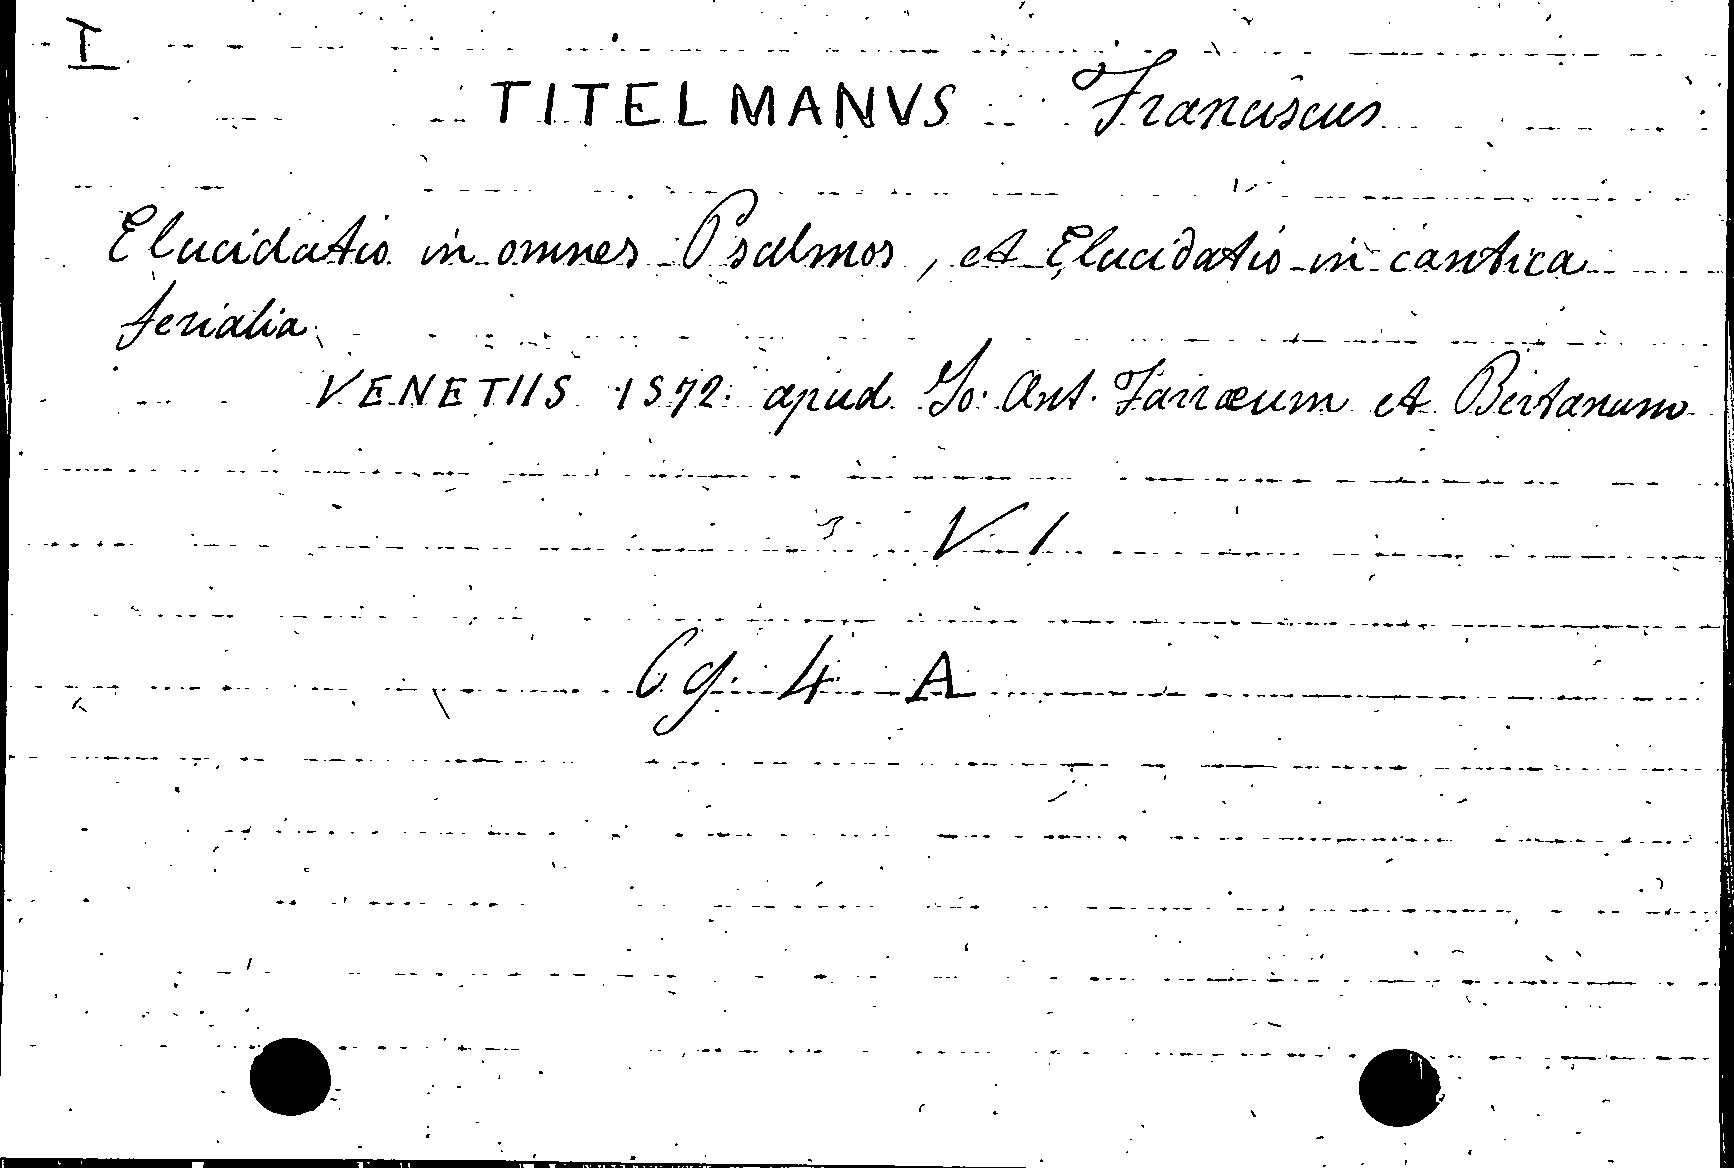 I
TITELMANVS Franciscus
Elucidatio in omnes Psalmos, et Elucidatio in cantica
ferialia.
VENETIIS 1572. apud Jo. Ant. Farræum et Bertanum
V 1
Cg. 4 A